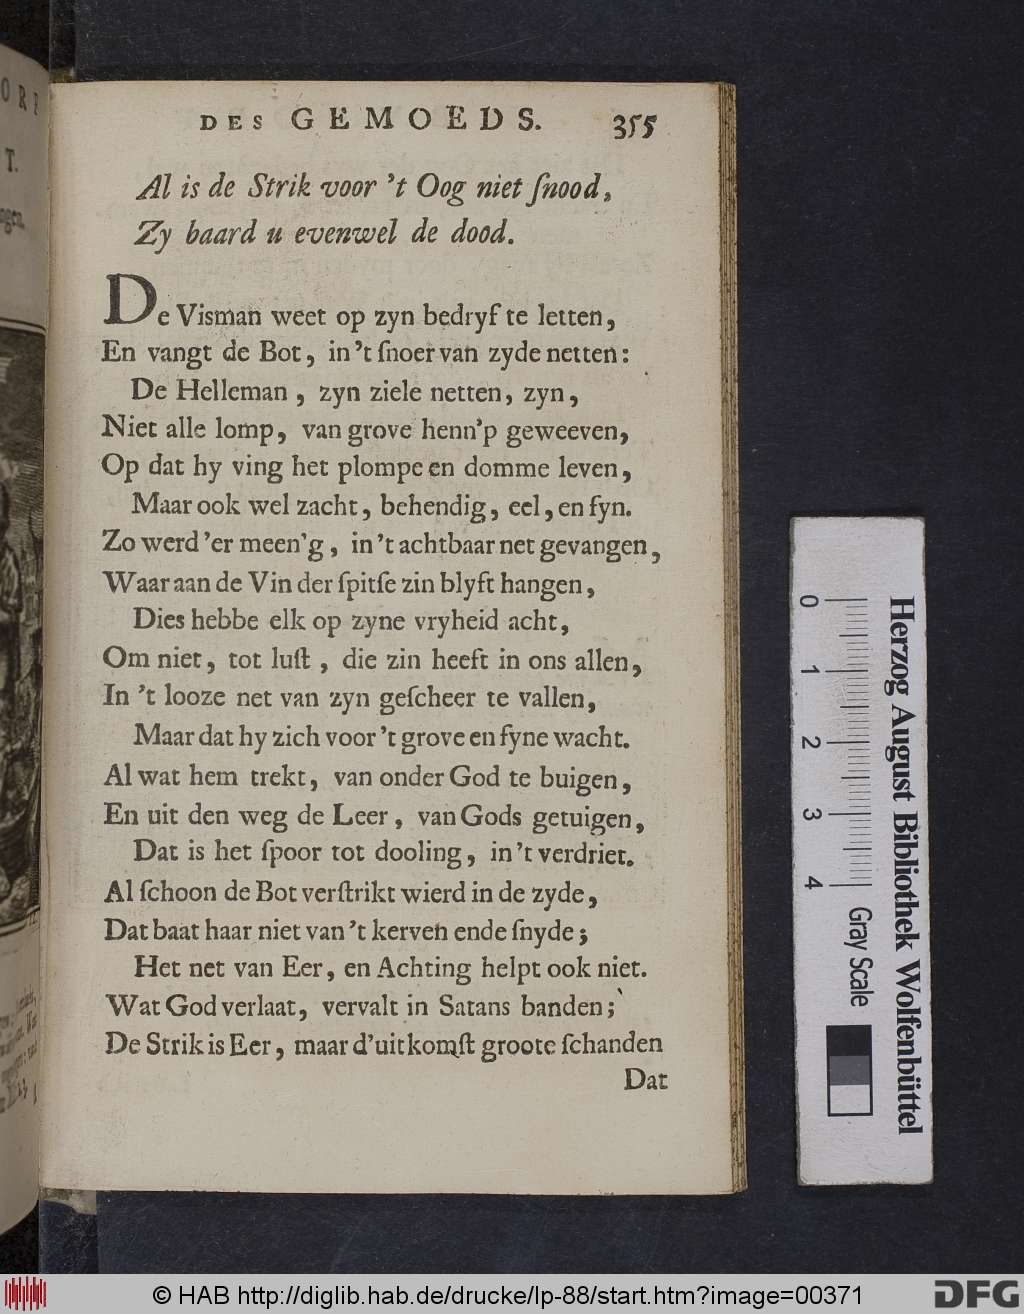 DES GEMOEDS. 355
Al is de Strik voor 't Oog niet ſnood,
Zy baard u evenwel de dood.
De Visman weet op zyn bedryf te letten,
En vangt de Bot, in 't ſnoer van zyde netten:
De Helleman, zyn ziele netten, zyn,
Niet alle lomp, van grove henn'p geweeven,
Op dat hy ving het plompe en domme leven,
Maar ook wel zacht, behendig, eel, en fyn.
Zo werd 'er meen'g, in 't achtbaar net gevangen,
Waar aan de Vin der ſpitſe zin blyft hangen,
Dies hebbe elk op zyne vryheid acht,
Om niet, tot luſt, die zin heeft in ons allen,
In 't looze net van zyn geſcheer te vallen,
Maar dat hy zich voor 't grove en fyne wacht.
Al wat hem trekt, van onder God te buigen,
En uit den weg de Leer, van Gods getuigen,
Dat is het ſpoor tot dooling, in 't verdriet.
Al ſchoon de Bot verſtrikt wierd in de zyde,
Dat baat haar niet van 't kerven ende ſnyde;
Het net van Eer, en Achting helpt ook niet.
Wat God verlaat, vervalt in Satans banden;
De Strik is Eer, maar d'uitkomſt groote ſchanden
Dat
0 1 2 3 4
Gray Scale
Herzog August Bibliothek Wolfenbüttel
© HAB http://diglib.hab.de/drucke/lp-88/start.htm?image=00371
DFG